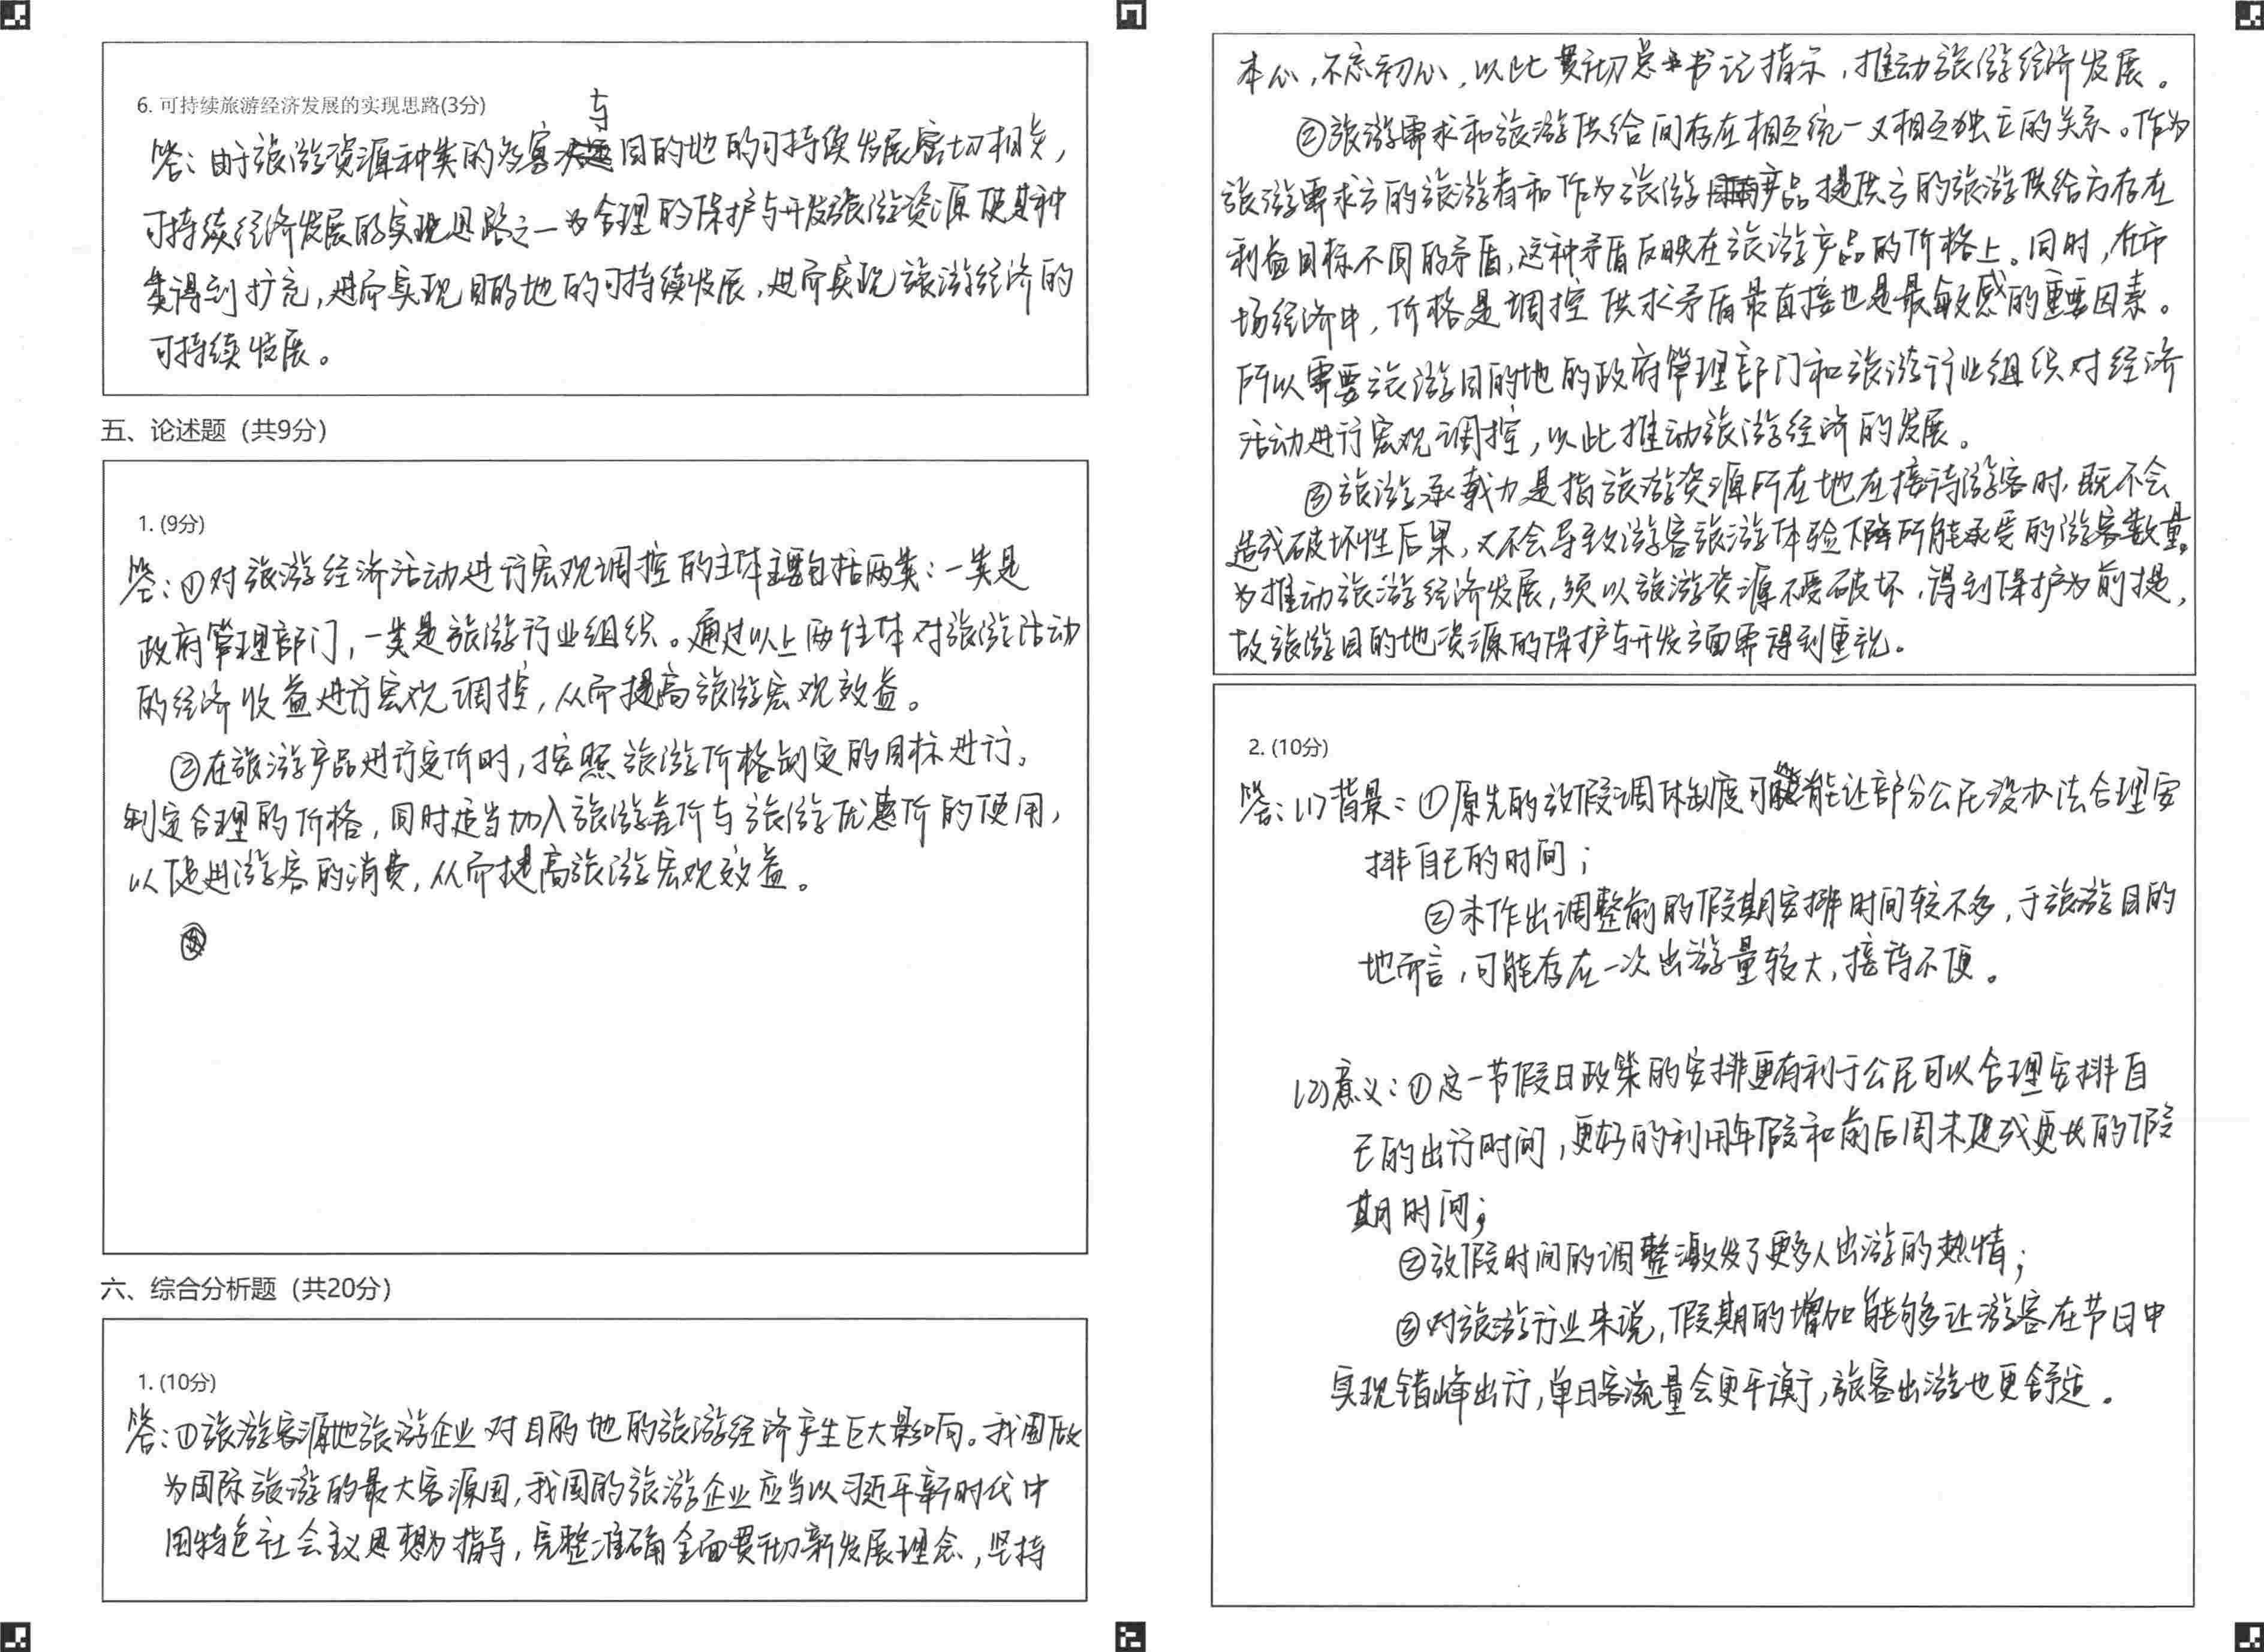 6. 可持续旅游经济发展的实现思路(3分)
答：由于旅游资源种类的多寡与目的地的可持续发展密切相关，
可持续经济发展的实现思路之一为合理的保护与开发旅游资源使其种
类得到扩充，进而实现目的地的可持续发展，进而实现旅游经济的
可持续发展。
五、论述题（共9分）
1. (9分)
答：①对旅游经济活动进行宏观调控的主体主要包括两类：一类是
政府管理部门，一类是旅游行业组织。通过以上两往体对旅游活动
的经济收益进行宏观调控，从而提高旅游宏观效益。
②在旅游产品进行定价时，按照旅游价格制定的目标进行。
制定合理的价格，同时适当加入旅游差价与旅游优惠价的使用，
以促进游客的消费，从而提高旅游宏观效益。
六、综合分析题（共20分）
1. (10分)
答：①旅游客源地旅游企业对目的地的旅游经济产生巨大影响。我国做
为国际旅游的最大客源国，我国的旅游企业应当以习近平新时代中
国特色社会主义思想为指导，完整准确全面贯彻新发展理念，坚持
本心，不忘初心，以此贯彻总书记指示，推动旅游经济发展。
②旅游需求和旅游供给间存在相互统一又相互独立的关系。作为
旅游需求方的旅游者和作为旅游产品提供方的旅游供给方存在
利益目标不同的矛盾，这种矛盾反映在旅游产品的价格上。同时，在市
场经济中，价格是调控供求矛盾最直接也是最敏感的重要因素。
所以需要旅游目的地的政府管理部门和旅游行业组织对经济
活动进行宏观调控，以此推动旅游经济的发展。
③旅游承载力是指旅游资源所在地在接待游客时，既不会
造成破坏性后果，又不会导致游客旅游体验下降所能承受的游客数量。
为推动旅游经济发展，须以旅游资源不受破坏，得到保护为前提，
故旅游目的地资源的保护与开发方面需得到重视。
2. (10分)
答：(1)背景：①原先的放假调休制度可能让部分公民没办法合理安
排自己的时间；
②未作出调整前的假期安排时间较不多，于旅游目的
地而言，可能存在一次出游量较大，接待不便。
(2)意义：①这一节假日政策的安排更有利于公民可以合理安排自
己的出行时间，更好的利用年假和前后周末促成更长的假
期时间；
②放假时间的调整激发了更多人出游的热情；
③对旅游行业来说，假期的增加能够让游客在节日中
实现错峰出行，单日客流量会更平衡，旅客出游也更舒适。